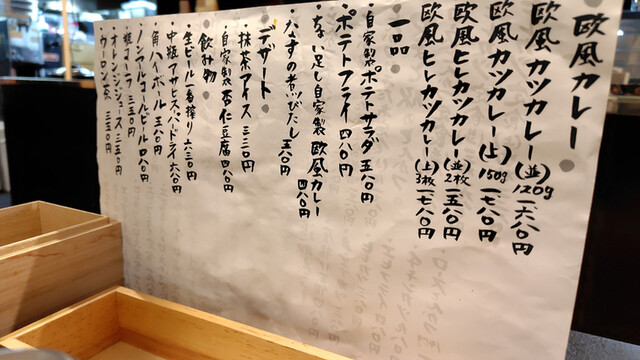 欧風カレー
欧風カツカレー(並)120g 一六八〇円
欧風カツカレー(上)150g 一七八〇円
欧風ヒレカツカレー(並)2枚 一五八〇円
欧風ヒレカツカレー(上)3枚 一七八〇円
一品
・自家製ポテトサラダ 五八〇円
・ポテトフライ 四八〇円
・ちょい足し自家製欧風カレー 四八〇円
・なすの煮びたし 五八〇円
デザート
・抹茶アイス 三三〇円
・自家製杏仁豆腐 四八〇円
飲み物
・生ビール一番搾り 六三〇円
・中瓶アサヒスーパードライ 六八〇円
・角ハイボール 五八〇円
・ノンアルコールビール 四八〇円
・瓶コーラ 三五〇円
・オレンジジュース 三五〇円
・ウーロン茶 三五〇円